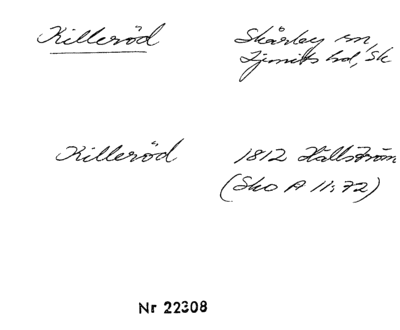 Killeröd
Skårby sn,
Ljunits hd, Sk
Killeröd
1812 Hällström
(Sko A 11:72)
Nr 22308